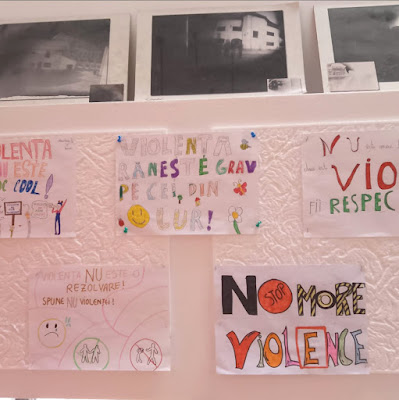 OLENTA
NU ESTE
COOL!
VIOLENTA
RANESTE GRAV
PE CEI DIN
JUR!
NU
VIO
RESPEC
VIOLENTA NU ESTE O
REZOLVARE!
SPUNE NU VIOLENTEI!
NO STOP MORE
VIOLENCE